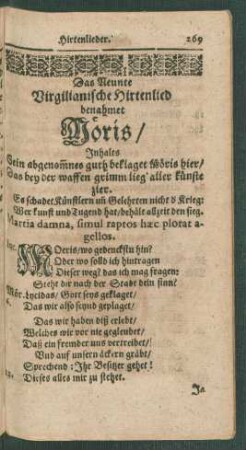 Hirtenlieder. 269
Das Neunte
Virgilianische Hirtenlied
benahmet
Möris/
Inhalts
Sein abgenom̃nes gutz beklaget Möris hier/
Das bey der waffen grimm lieg' aller künste
zier.
Es schadet Künstlern uñ Gelehrten nicht d' Krieg:
Wer kunst und Tugend hat/behält allzeit den sieg.
Martia damna, simul raptos hæc plorat a-
gellos.
Moeris/wo gedenckstu hin?
Oder wo solld ich hintragen
Dieser weg? das ich mag fragen:
Steht dir nach der Stadt dein sinn?
Mör. Lycidas/ Gott seys geklaget/
Das wir also seynd geplaget/
Das wir haben diß erlebt/
Welches wir vor nie gegleubet/
Daß ein fremder uns vertreibet/
Und auf unsern äckern gräbt/
Sprechend: Ihr Besitzer gehet!
Dieses alles mir zu stehet.
Ja